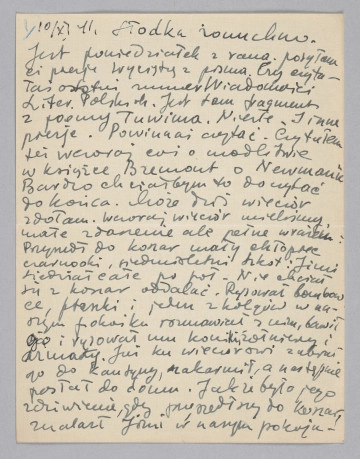 10/XI. 41. Słodka
Jest poniedziałek z rana. posyłam
ci poezje wycięte z pisma. Czy czyta-
łaś ostatni numer Wiadomości
Liter. Polskich. Jest tam fragment
z poematu Tuwima. Nieźle. I inne
poezje. Powinnaś czytać. Czytałem
też wczoraj coś o modlitwie
w książce Bremont o Newmanie
Bardzo chciałbym to doczytać
do końca. Może dziś wieczór
zdołam. Wczoraj wieczór mieliśmy
małe zdarzenie ale pełne wrażeń:
Przyszedł do koszar mały chłopiec
czarnooki, siedmioletni Szkot. Jimi
siedział całe po poł. Nie chciał
się z koszar oddalać. Rysował bombow-
ce, ptaszki i jeden z kolegów w na-
szym pokoiku rozmawiał z nim, bawił
go i rysował mu koniki, żołnierzy i
armaty. Już ku wieczorowi zabrał
go do kantyny, nakarmił, a następnie
posłał do domu. Jakież było jego
zdziwienie, gdy przyszedłszy do koszar
znalazł Jimi w naszym pokoju-